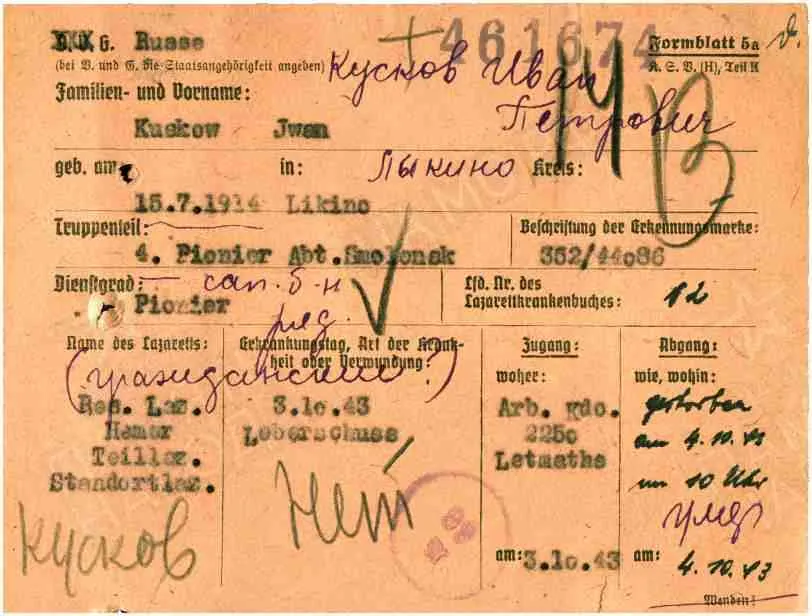 G. Russe
461674
Formblatt 5a
(bei V. und G. Re-Staatsangehörigkeit angeben)
K. S. V. (H), Teil K
Кусков Иван
Familien- und Vorname:
Петрович
Kuskow Jwan
geb. am: in: Лыкино Kreis:
15.7.1914 Likino
Truppenteil: Beschriftung der Erkennungsmarke:
4. Pionier Abt. Smolensk 352/44086
Dienstgrad: сап. б-н Lfd. Nr. des
Pionier Lazarettkrankenbuches: 12
ряд.
Name des Lazaretts: Erkrankungstag, Art der Krank- Zugang: Abgang:
heit oder Verwundung:
(гражданский?) woher: wie, wohin:
Res. Laz. 3.10.43 Arb. Kdo. gestorben
Hemer Leberschuss 2250 am 4.10.43
Teillaz. Letmathe um 10 Uhr
Standortlaz.
Нет
умер
Кусков
am: 3.10.43 am: 4.10.43
Wenden!